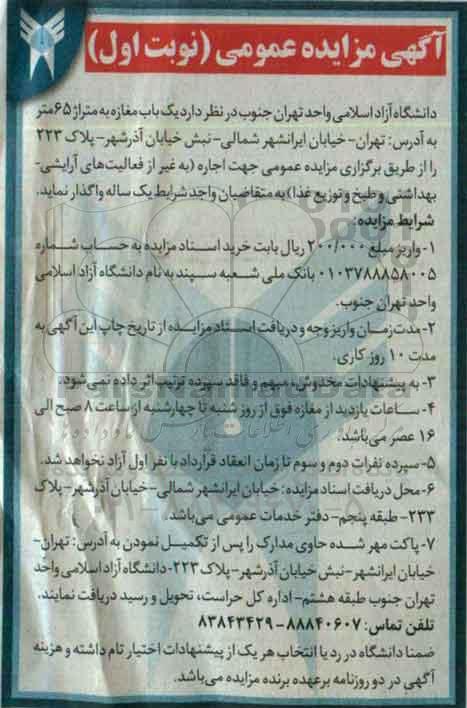 آگهی مزایده عمومی (نوبت اول)
دانشگاه آزاد اسلامی واحد تهران جنوب در نظر دارد یک باب مغازه به متراژ ۶۵ متر
به آدرس: تهران- خیابان ایرانشهر شمالی- نبش خیابان آذرشهر- پلاک ۲۲۳
را از طریق برگزاری مزایده عمومی جهت اجاره (به غیر از فعالیت‌های آرایشی-
بهداشتی و طبخ و توزیع غذا) به متقاضیان واجد شرایط یک ساله واگذار نماید.
شرایط مزایده:
۱- واریز مبلغ ۲۰۰/۰۰۰ ریال بابت خرید اسناد مزایده به حساب شماره
۰۱۰۳۷۸۸۸۵۸۰۰۵ بانک ملی شعبه سپند به نام دانشگاه آزاد اسلامی
واحد تهران جنوب.
۲- مدت زمان واریز وجه و دریافت اسناد مزایده از تاریخ چاپ این آگهی به
مدت ۱۰ روز کاری.
۳- به پیشنهادات مخدوش، مبهم و فاقد سپرده ترتیب اثر داده نمی‌شود.
۴- ساعات بازدید از مغازه فوق از روز شنبه تا چهارشنبه از ساعت ۸ صبح الی
۱۶ عصر می‌باشد.
۵- سپرده نفرات دوم و سوم تا زمان انعقاد قرارداد با نفر اول آزاد نخواهد شد.
۶- محل دریافت اسناد مزایده: خیابان ایرانشهر شمالی- خیابان آذرشهر- پلاک
۲۲۳- طبقه پنجم- دفتر خدمات عمومی می‌باشد.
۷- پاکت مهر شده حاوی مدارک را پس از تکمیل نمودن به آدرس: تهران-
خیابان ایرانشهر- نبش خیابان آذرشهر- پلاک ۲۲۳- دانشگاه آزاد اسلامی واحد
تهران جنوب طبقه هشتم- اداره کل حراست، تحویل و رسید دریافت نمایند.
تلفن تماس: ۸۸۸۴۰۶۰۷ - ۸۳۸۴۳۴۲۹
ضمنا دانشگاه در رد یا انتخاب هر یک از پیشنهادات اختیار تام داشته و هزینه
آگهی در دو روزنامه برعهده برنده مزایده می‌باشد.